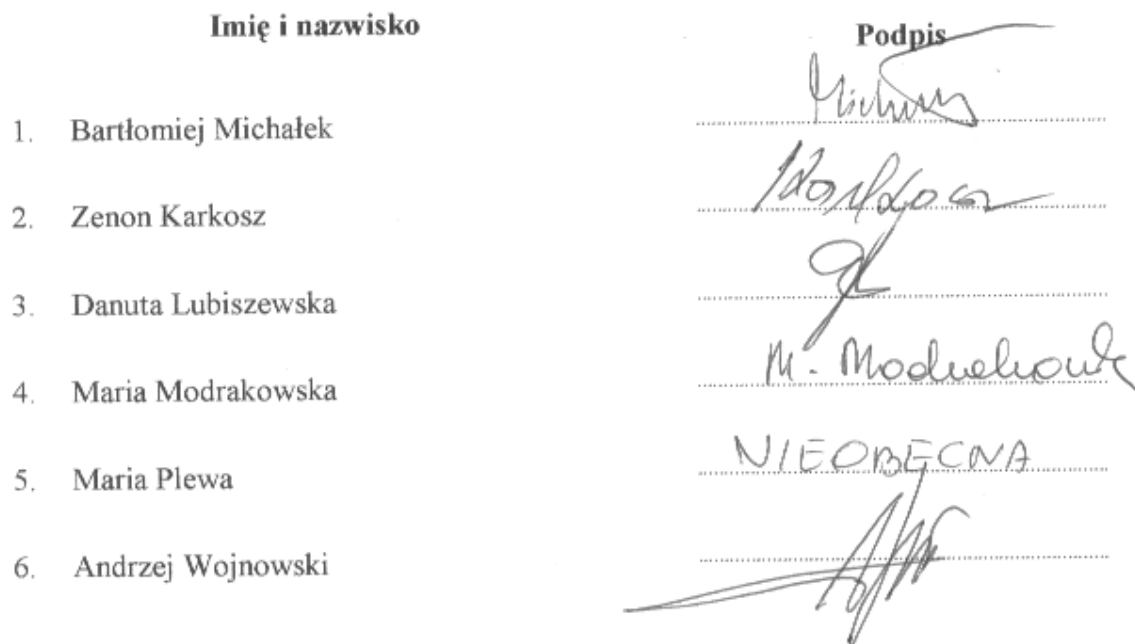 Imię i nazwisko Podpis
1. Bartłomiej Michałek
2. Zenon Karkosz
3. Danuta Lubiszewska
4. Maria Modrakowska M.
5. Maria Plewa NIEOBECNA
6. Andrzej Wojnowski